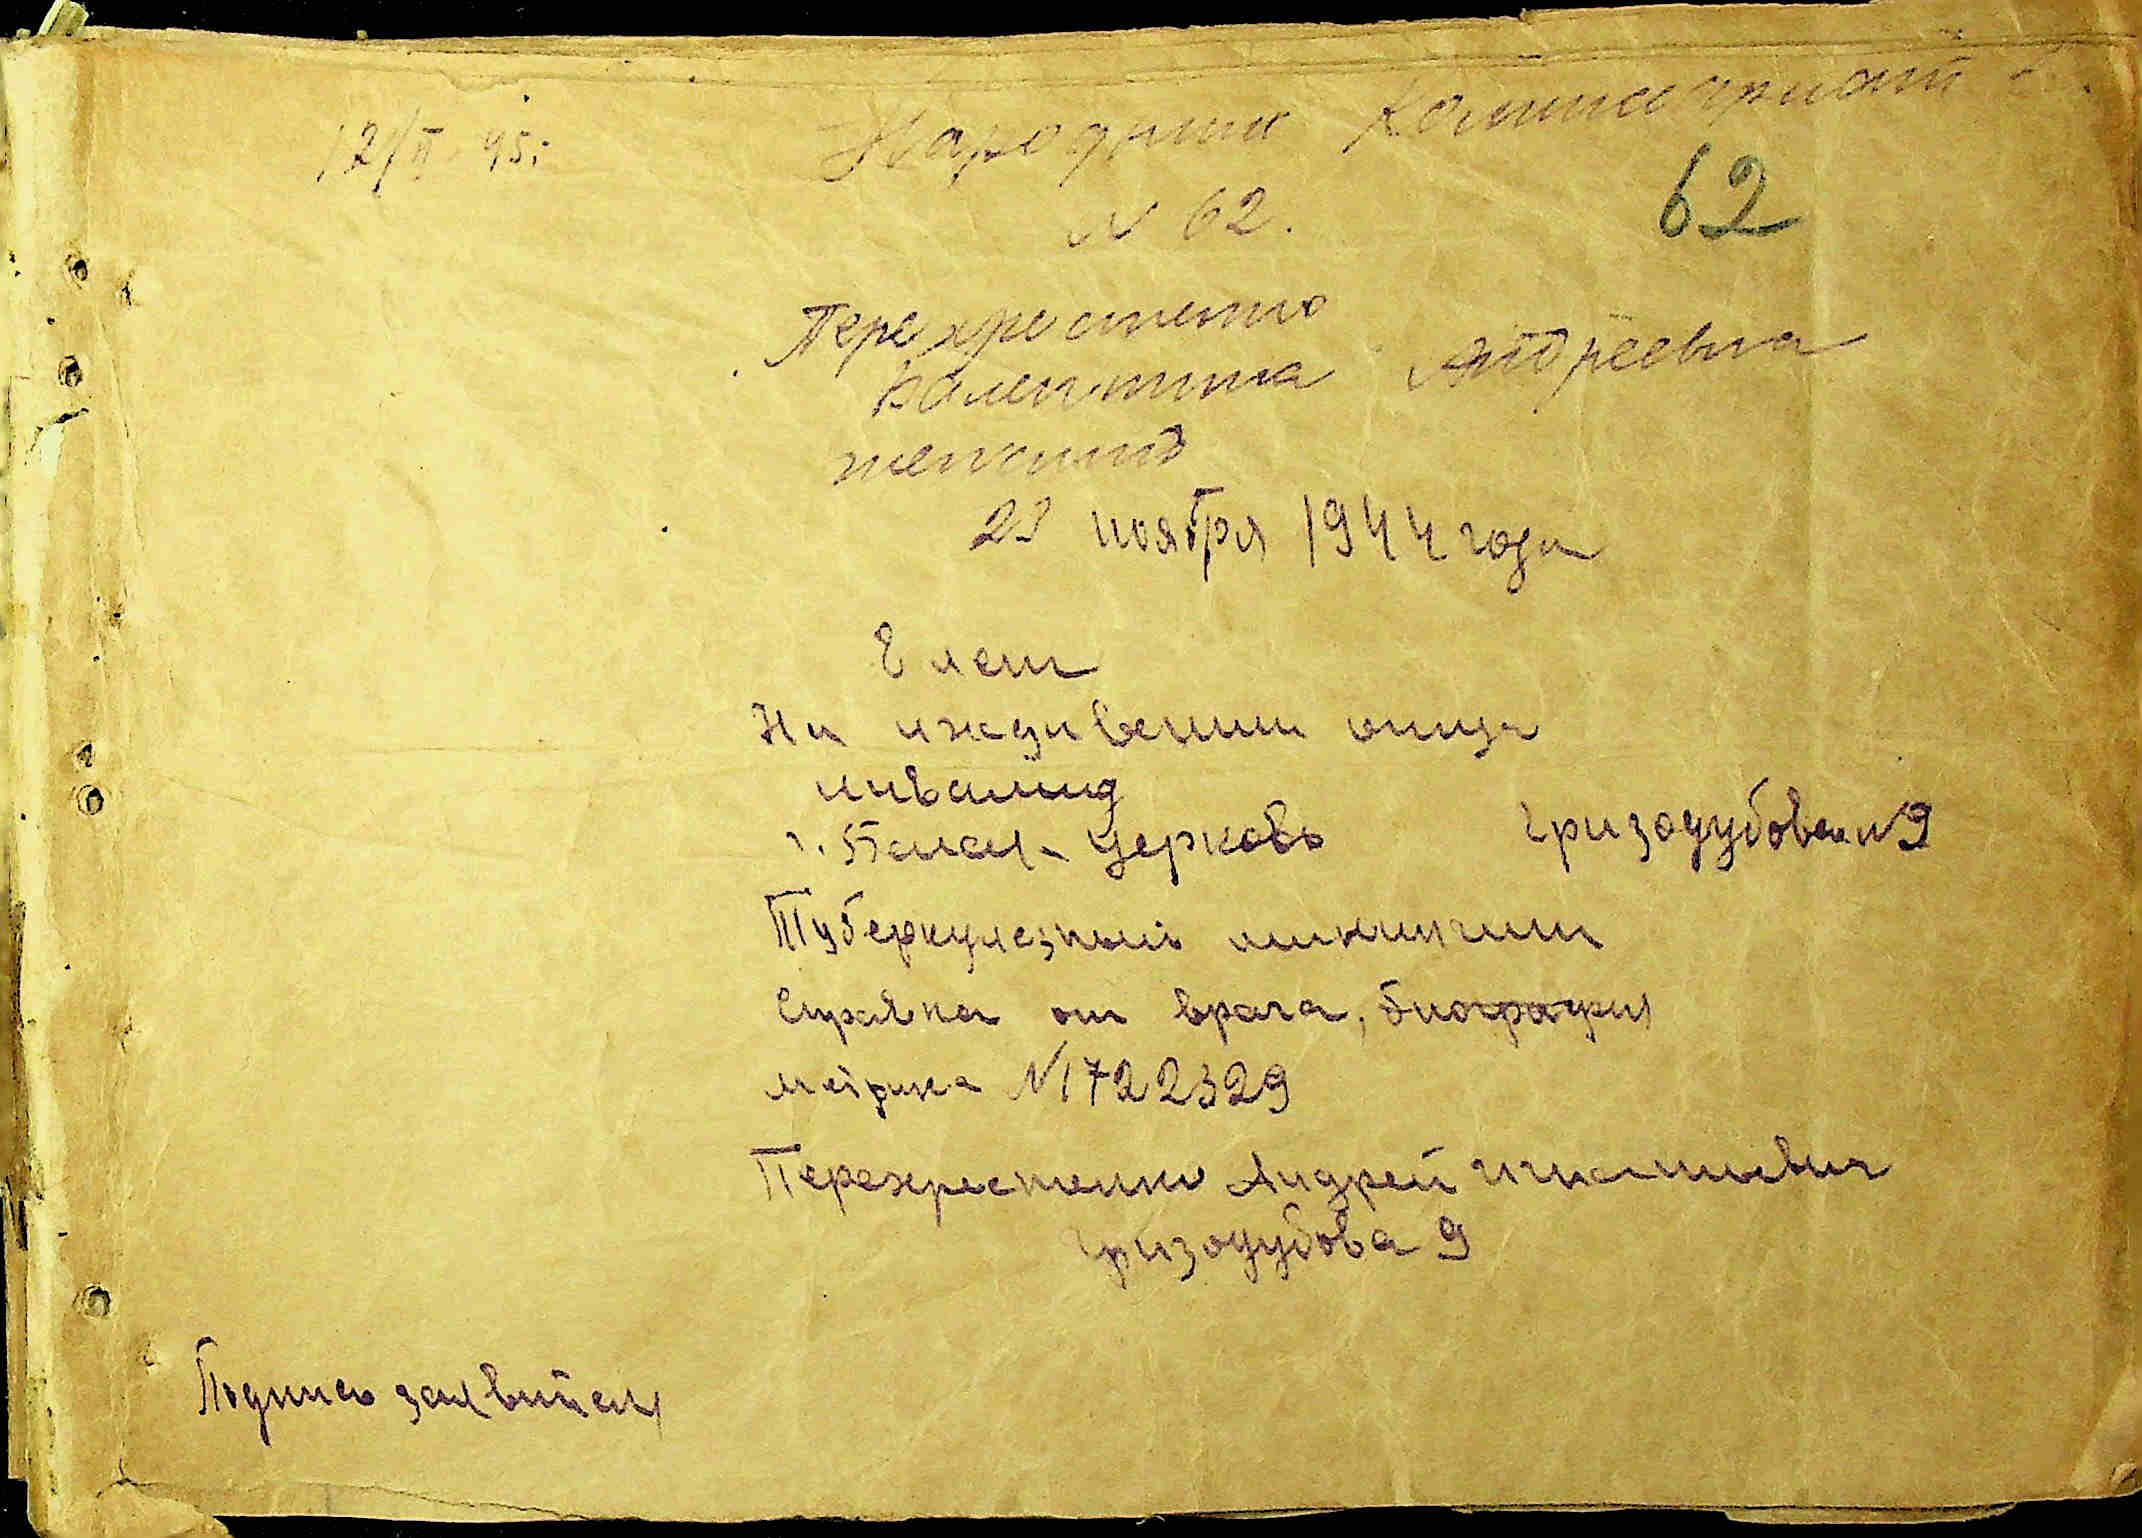 12/II 45г
Народный Комиссариат
N 62.
62
Перехрестенко
Валентина Андреевна
женский
23 ноября 1944 года
8 лет
На иждивении отца
инвалид
г. Белая-Церковь Гризодубова N 9
Туберкулезный менингит
Справка от врача, биография
метрика N 1722329
Перехрестенко Андрей Игнатьевич
Гризодубова 9
Подпись заявителя